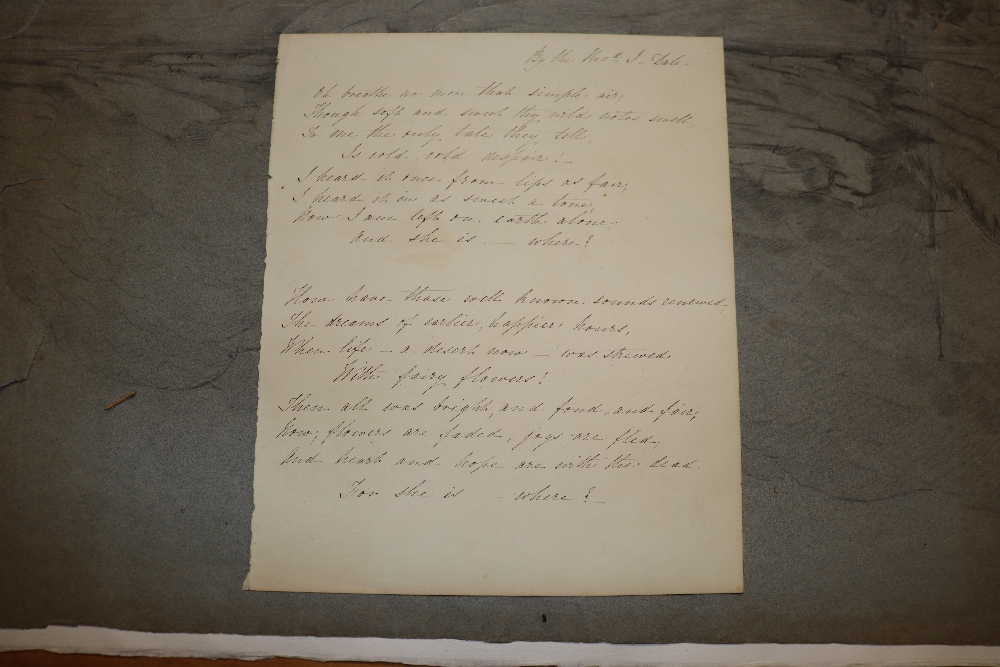 By the Revd. J. Dale.
Oh breathe no more that simple air,
Though soft and sweet thy wild notes swell,
To me the only tale they tell
Is cold, cold despair! —
I heard it once from lips as fair,
I heard it in as sweet a tone,
Now I am left on earth alone,
And she is — where?
How have those well known sounds renewed,
The dreams of earlier, happier hours,
When life — a desert now — was strewed
With fairy flowers!
Then all was bright, and fond, and fair,
Now, flowers are faded, joys are fled,
And heart and hope are with the dead
For she is — where? —